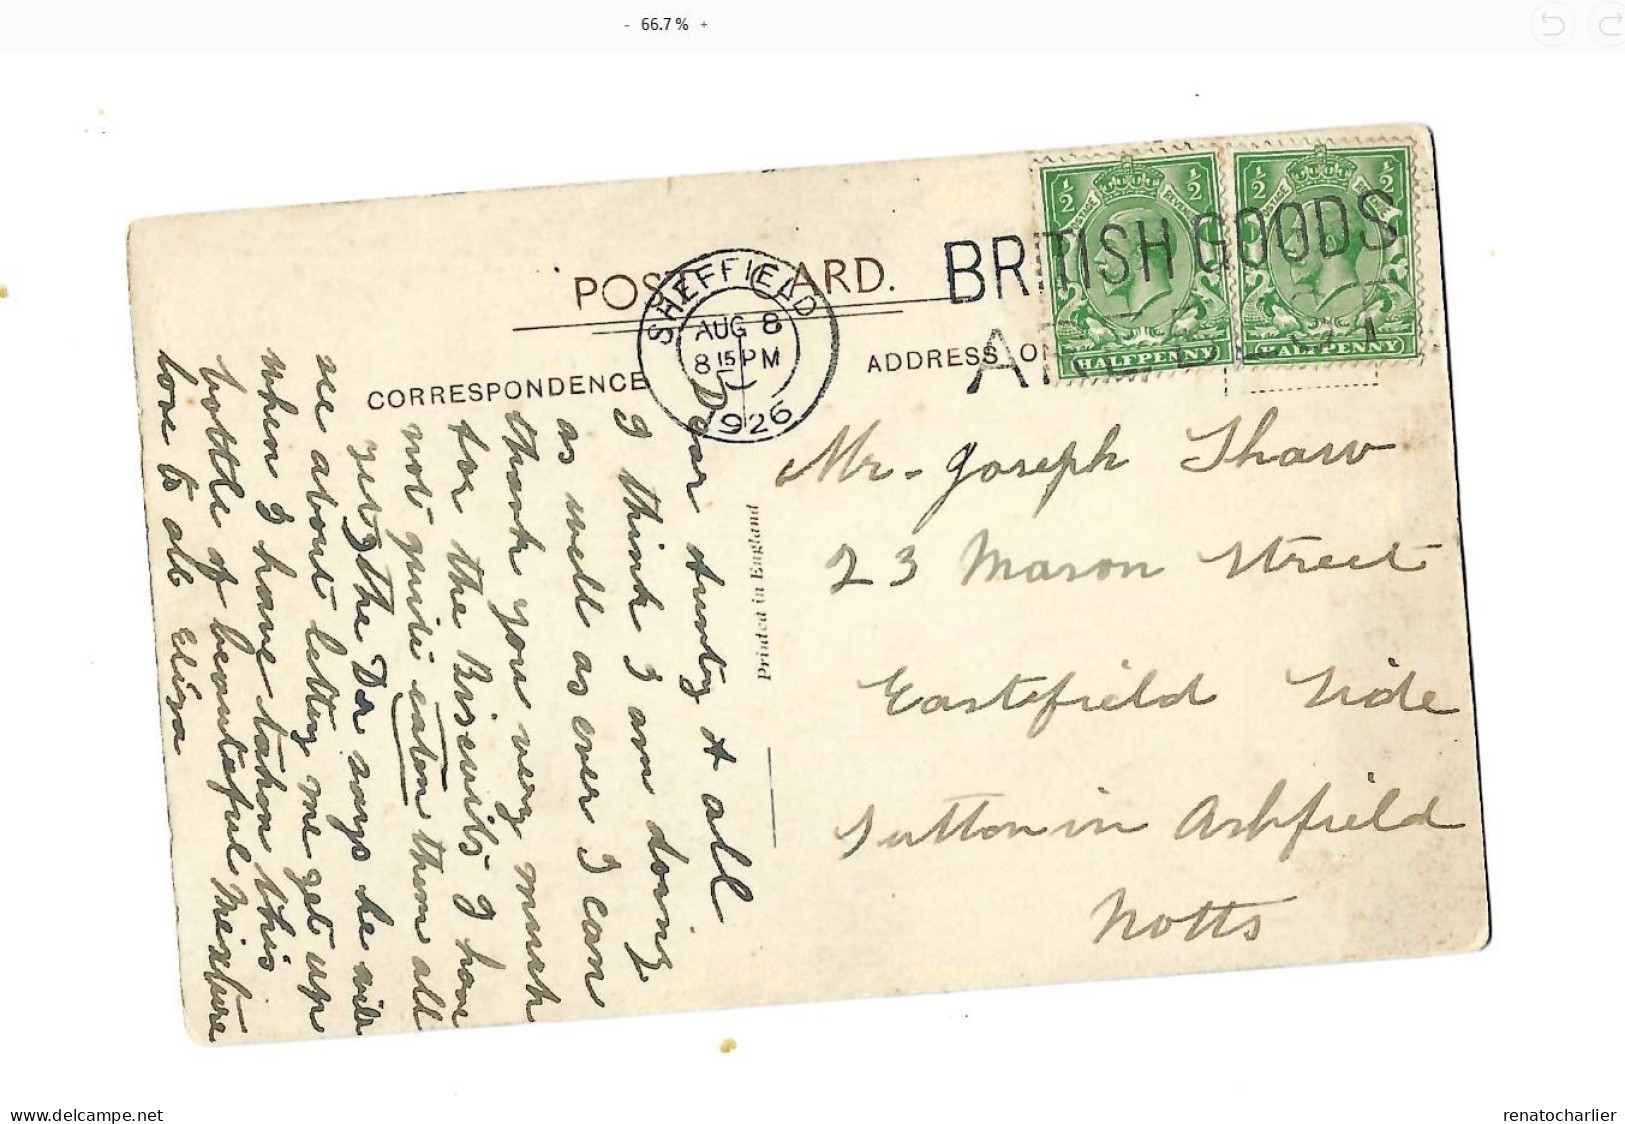 - 66.7 % +
POST CARD.
SHEFFIELD
AUG 8
8 15 PM
1926
BRITISH GOODS
ARE BEST
POSTAGE REVENUE
1/2 1/2
HALFPENNY
POSTAGE REVENUE
1/2 1/2
HALFPENNY
CORRESPONDENCE
ADDRESS ON
Printed in England
Dear Aunty & all
I think I am doing
as well as ever I can
thank you very much
for the Biscuits I have
not quite eaten them all
yet, the Dr says he will
see about letting me get up
when I have taken this
bottle of beautiful Mixture
love to all Eliza
Mr. Joseph Shaw
23 Mason Street
Eastfield Side
Sutton in Ashfield
Notts
www.delcampe.net
renatocharlier